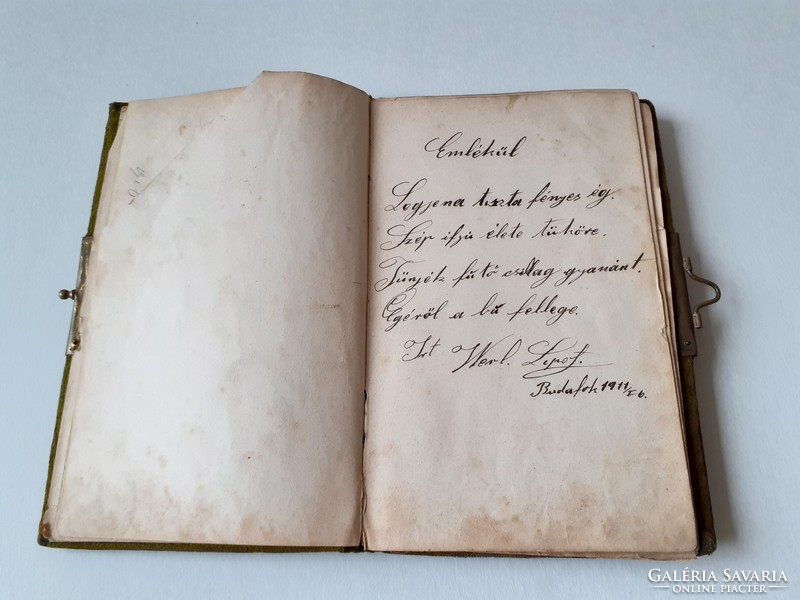 Emlékül
Legyen a tiszta fényes ég.
Szép ifjú élete tüköre.
Tűnjék futó csillag gyanánt.
Egéről a bú fellege.
Irt Werl. Lipot.
Budafok 1911/ 6.
GALÉRIA SAVARIA
ONLINE PIACTÉR